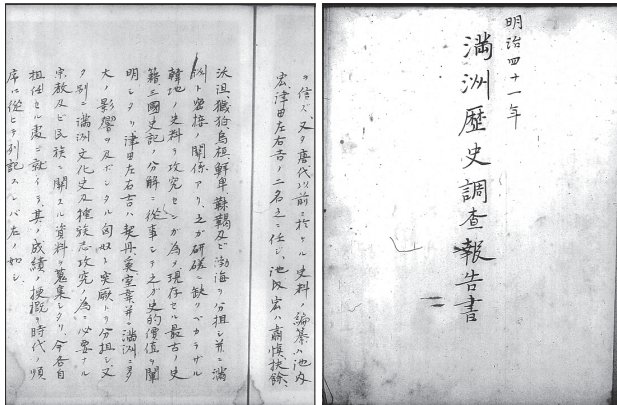 明治四十一年
満洲歴史調査報告書
ヲ信ズ、又タ唐代以前ニ於ケル史料ノ論纂ハ池内
宏、津田左右吉ノ二名之ニ任ジ、池内宏ハ粛慎、扶餘、
沃沮、獩狛、烏桓、鮮卑、靺鞨及ビ渤海ヲ分担シ并ニ満
洲ト密接ノ関係アリ之ガ研磋ニ缺クベカラザル
韓地ノ史料ヲ攻究センガ為メ現存セル最古ノ史
籍三國史記ノ分解ニ従事シテ之ガ史的價値ヲ闡
明シタリ津田左右吉ハ契丹、奚、室韋并ニ満洲ニ多
大ノ影響ヲ及ボシタル匈奴、突厥トヲ分担シ又
タ別ニ満洲文化史及種族志攻究ノ為ニ必要ナル
宗教及ビ民族ニ関スル資料ヲ蒐集シタリ、今各自
担任セル亊ニ就イテ其ノ成績ノ梗概ヲ時代ノ順
序ニ従ヒテ列記スレバ左ノ如シ